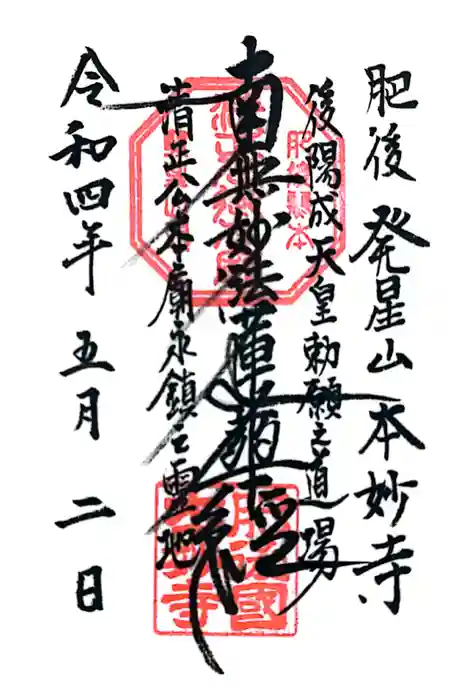 肥後 発星山 本妙寺
後陽成天皇勅願之道場
南無妙法蓮華経
清正公本廟永鎮之霊地
令和四年 五月 二日